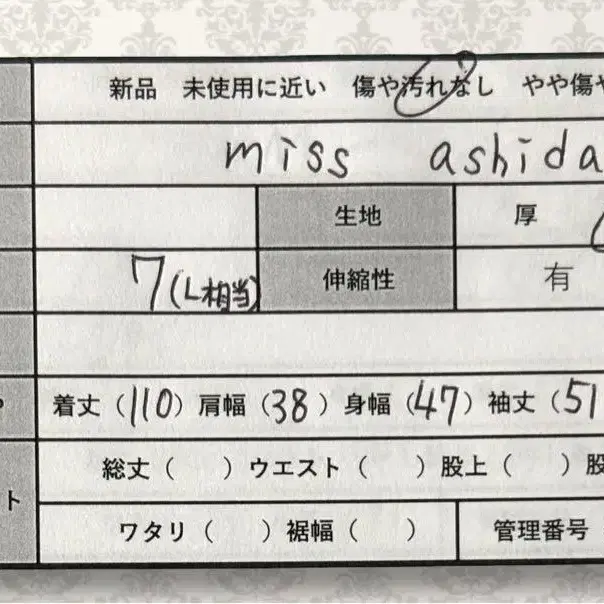 新品 未使用に近い 傷や汚れなし やや傷や
miss ashida
生地 厚
7(L相当) 伸縮性 有
着丈(110)肩幅(38)身幅(47)袖丈(51
総丈( )ウエスト( )股上( )股
ト
ワタリ( )裾幅( ) 管理番号